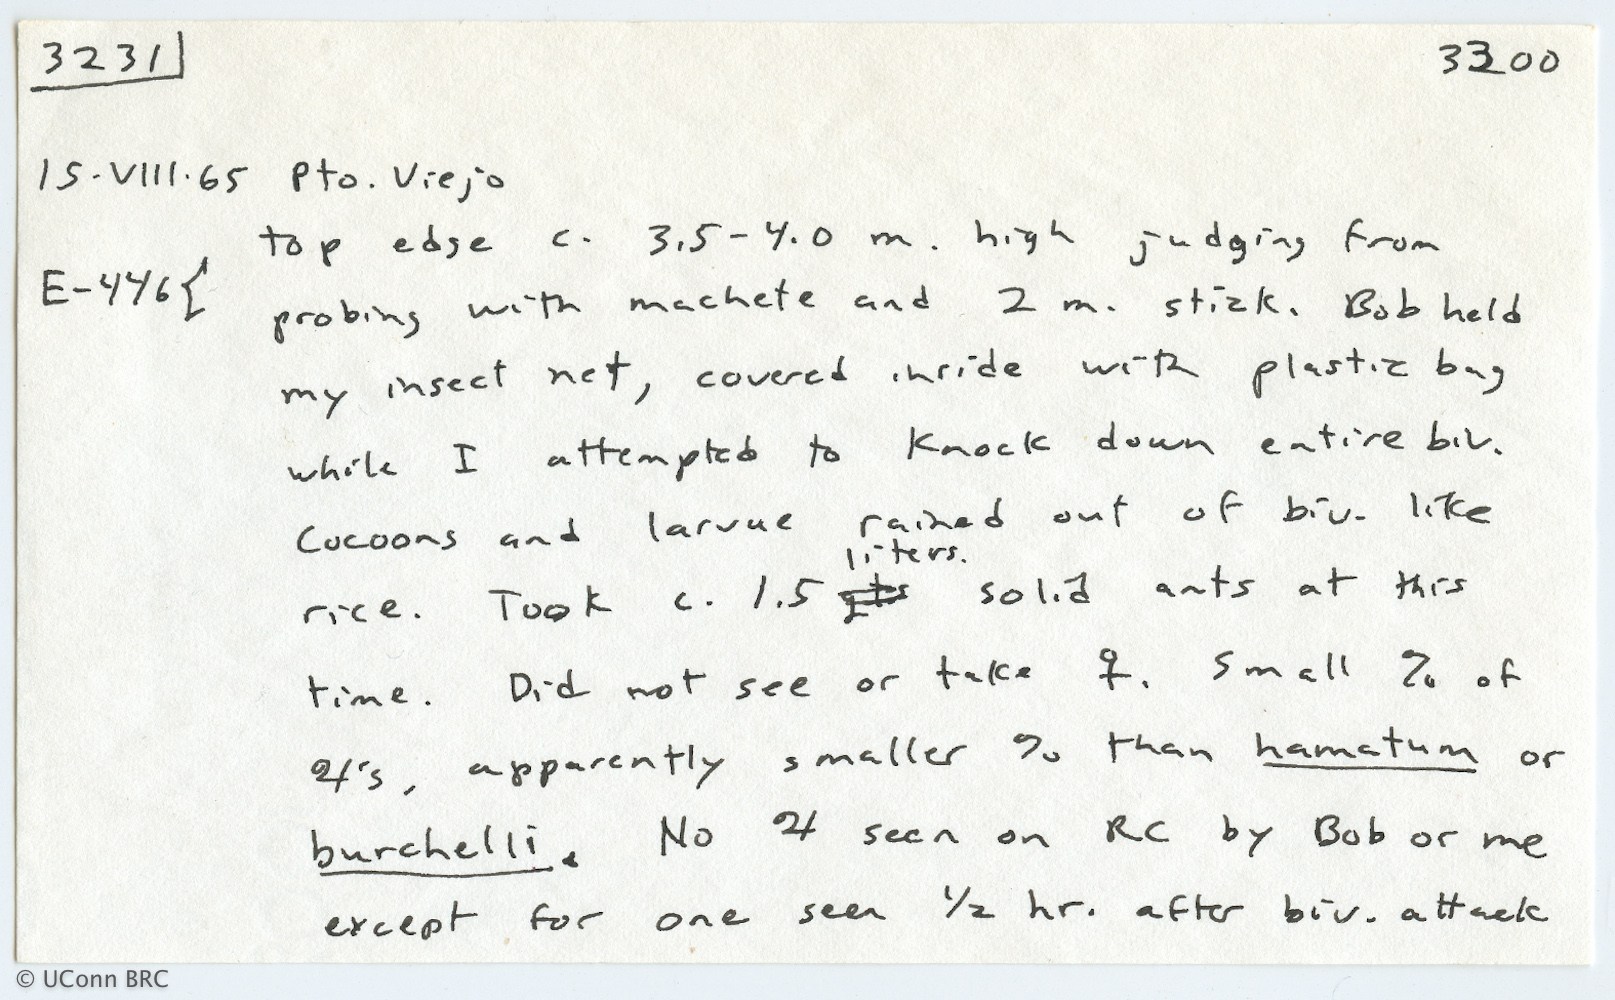 3231
3300
15·VIII·65 Pto. Viejo
top edge c. 3.5-4.0 m. high judging from
E-446{
probing with machete and 2 m. stick. Bob held
my insect net, covered inside with plastic bag
while I attempted to knock down entire biv.
Cocoons and larvae rained out of biv. like
liters.
rice. Took c. 1.5 qts solid ants at this
time. Did not see or take ♀. Small % of
♃'s, apparently smaller % than hamatum or
burchelli. No ♃ seen on RC by Bob or me
except for one seen 1/2 hr. after biv. attack
© UConn BRC